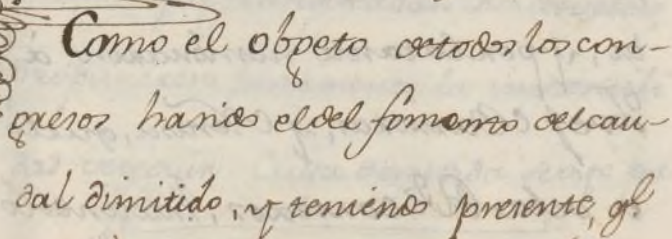 Como el obgeto detodos los con-
gresos hasido eldel fomento delcau-
dal dimitido, y teniendo presente, qe